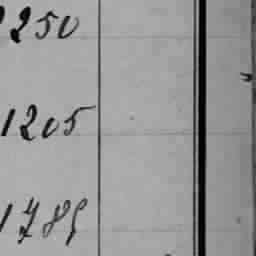 2250
1205
1785